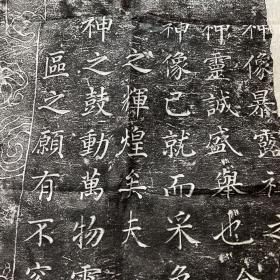 神像暴露
神靈誠盛舉也
神像已就而采色
之輝煌矣夫
神之鼓動萬物靈
區之願有不容